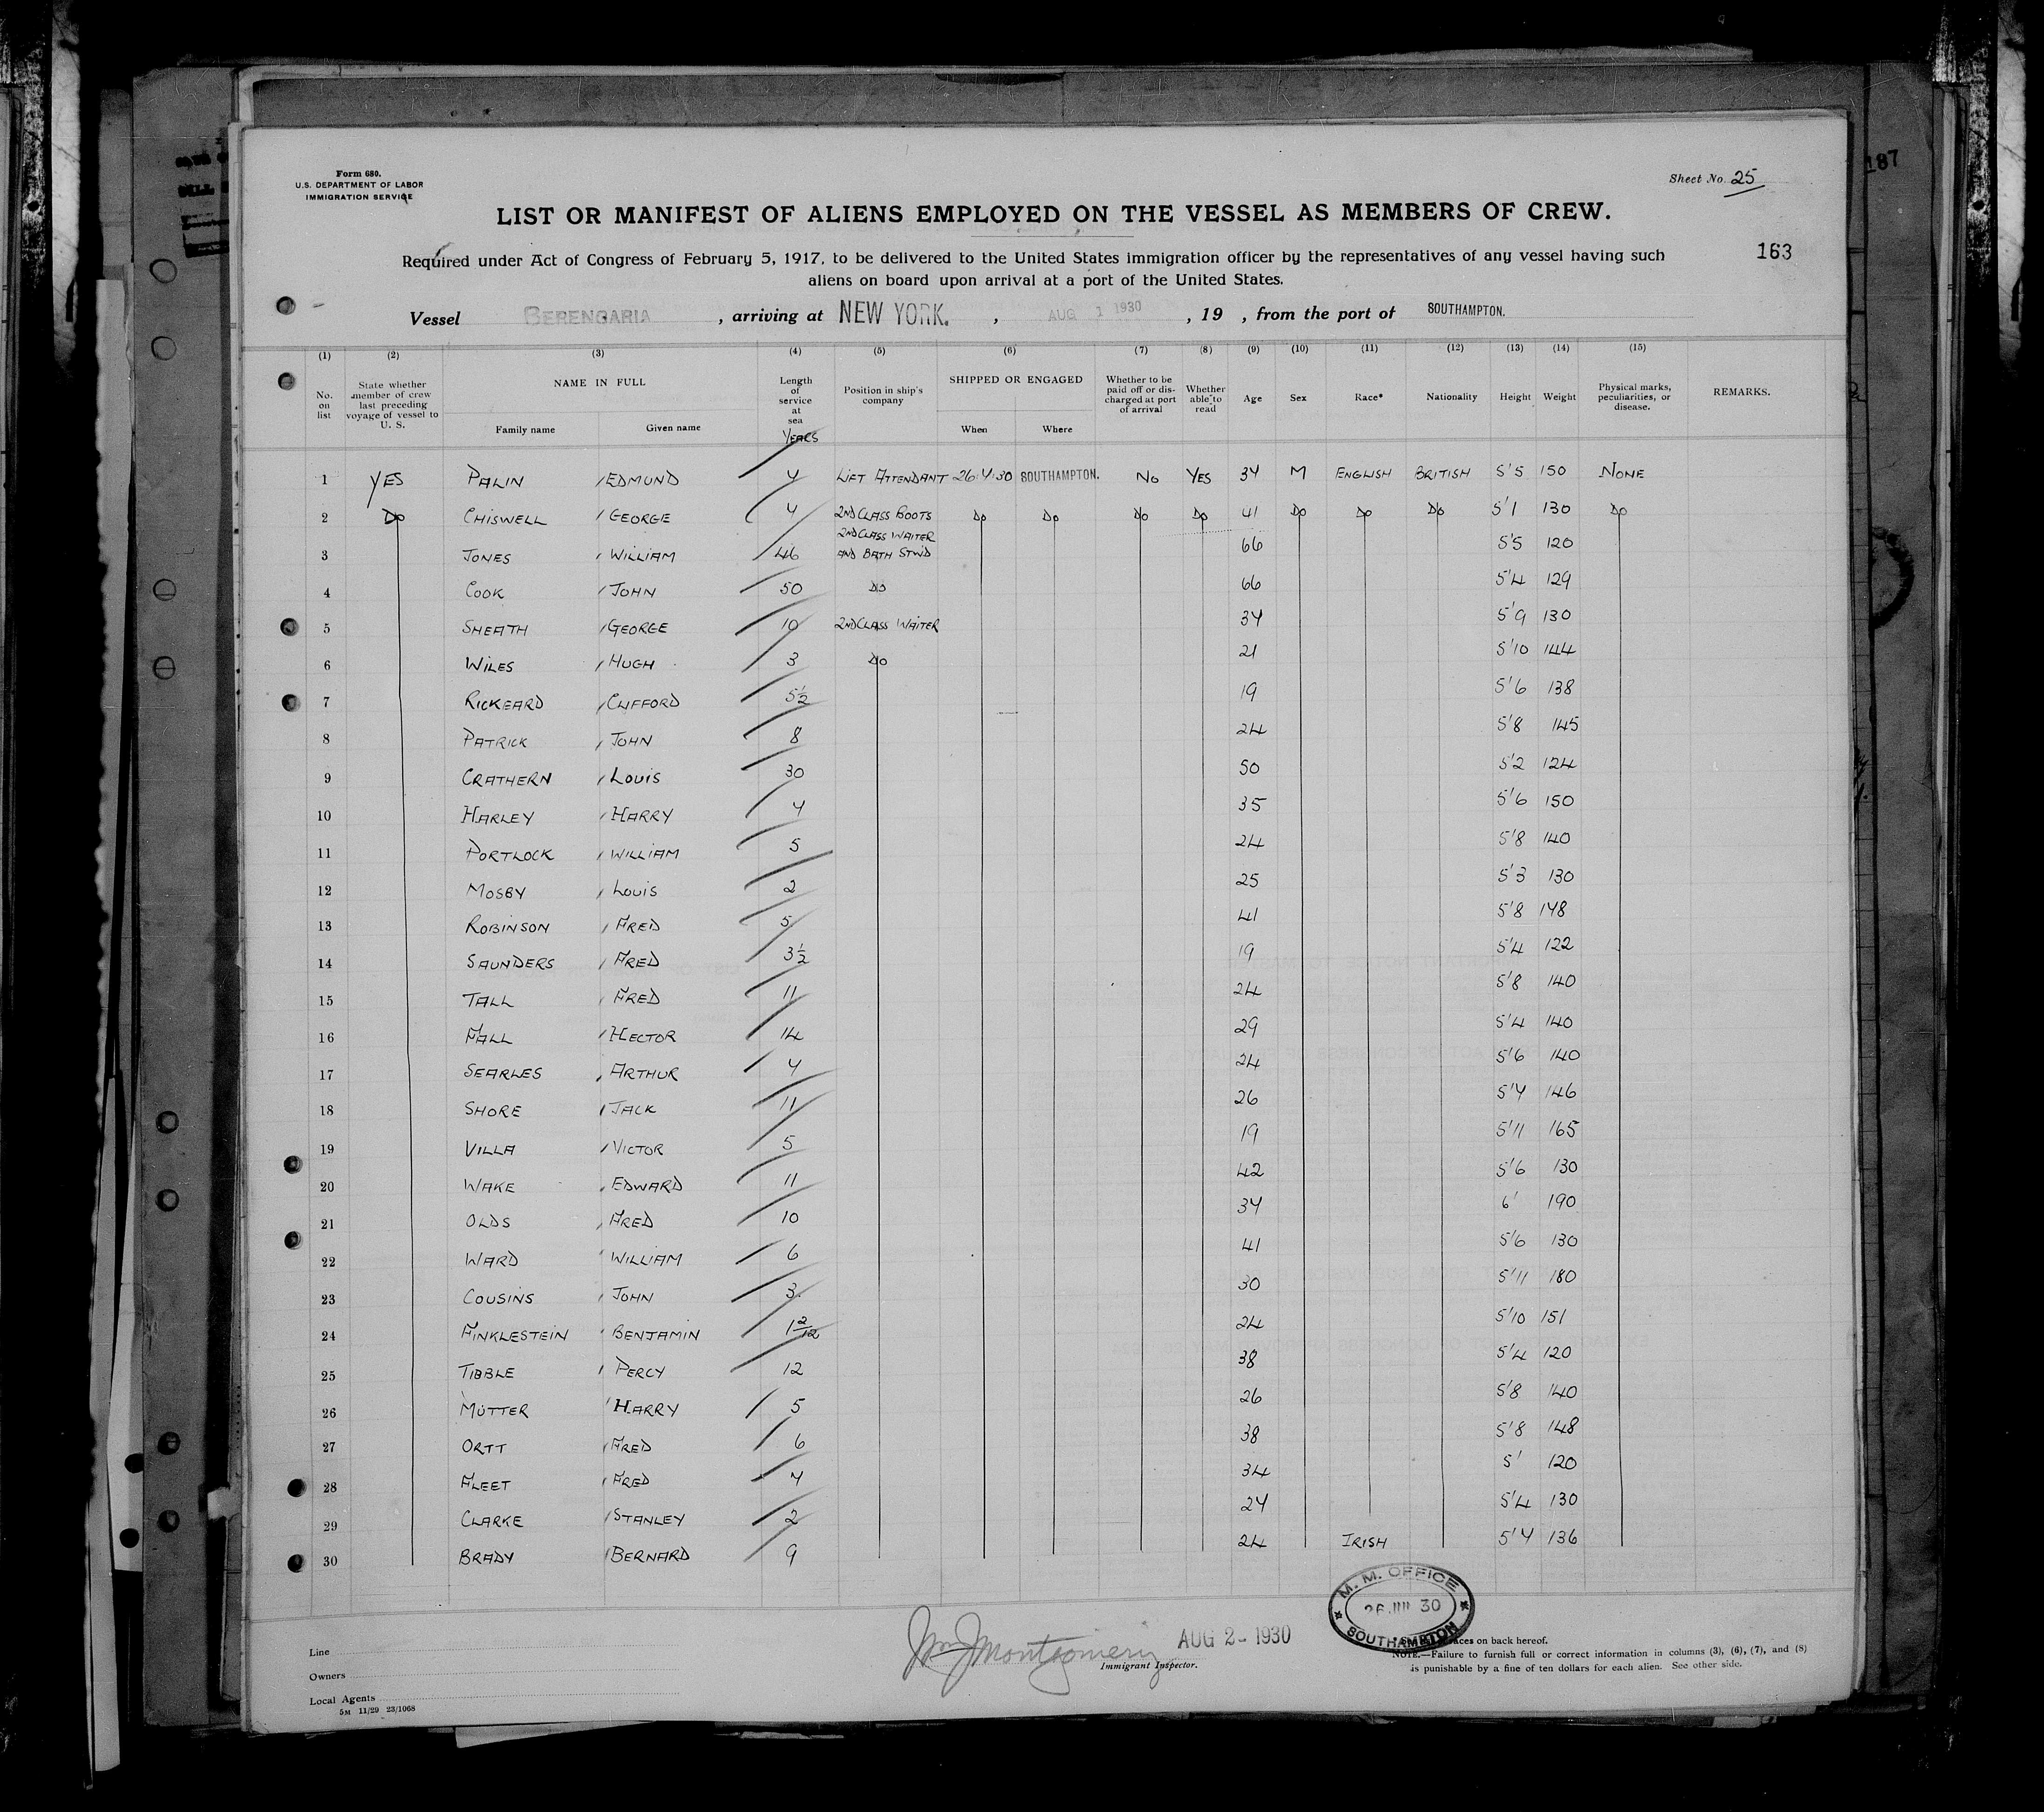 187
Form 680.
U.S. DEPARTMENT OF LABOR
IMMIGRATION SERVICE
Sheet No. 25
LIST OR MANIFEST OF ALIENS EMPLOYED ON THE VESSEL AS MEMBERS OF CREW.
163
Required under Act of Congress of February 5, 1917, to be delivered to the United States immigration officer by the representatives of any vessel having such
aliens on board upon arrival at a port of the United States.
Vessel BERENGARIA , arriving at NEW YORK. , AUG 1 1930 , 19 , from the port of SOUTHAMPTON.
(1) (2) (3) (4) (5) (6) (7) (8) (9) (10) (11) (12) (13) (14) (15)
No. on list State whether member of crew last preceding voyage of vessel to U. S. NAME IN FULL Family name Given name Length of service at sea YEARS Position in ship's company SHIPPED OR ENGAGED When Where Whether to be paid off or discharged at port of arrival Whether able to read Age Sex Race* Nationality Height Weight Physical marks, peculiarities, or disease. REMARKS.
1 YES PALIN EDMUND 4 LIFT ATTENDANT 26.4.30 SOUTHAMPTON. NO YES 34 M ENGLISH BRITISH 5'5 150 NONE
2 DO CHISWELL GEORGE 4 2ND CLASS BOOTS DO DO DO DO 41 DO DO DO 5'1 130 DO
3 JONES WILLIAM 46 2ND CLASS WAITER AND BATH STWD 66 5'5 120
4 COOK JOHN 50 DO 66 5'4 129
5 SHEATH GEORGE 10 2ND CLASS WAITER 34 5'9 130
6 WILES HUGH 3 DO 21 5'10 144
7 RICKEARD CLIFFORD 5½ 19 5'6 138
8 PATRICK JOHN 8 24 5'8 145
9 CRATHERN LOUIS 30 50 5'2 124
10 HARLEY HARRY 4 35 5'6 150
11 PORTLOCK WILLIAM 5 24 5'8 140
12 MOSBY LOUIS 2 25 5'3 130
13 ROBINSON FRED 5 41 5'8 148
14 SAUNDERS FRED 3½ 19 5'4 122
15 TALL FRED 11 24 5'8 140
16 FALL HECTOR 14 29 5'4 140
17 SEARLES ARTHUR 4 24 5'6 140
18 SHORE JACK 11 26 5'4 146
19 VILLA VICTOR 5 19 5'11 165
20 WAKE EDWARD 11 42 5'6 130
21 OLDS FRED 10 34 6' 190
22 WARD WILLIAM 6 41 5'6 130
23 COUSINS JOHN 3 30 5'11 180
24 FINKLESTEIN BENJAMIN 1 2/12 24 5'10 151
25 TIBBLE PERCY 12 38 5'4 120
26 MUTTER HARRY 5 26 5'8 140
27 ORTT FRED 6 38 5'8 148
28 FLEET FRED 4 34 5' 120
29 CLARKE STANLEY 2 24 5'4 130
30 BRADY BERNARD 9 24 IRISH 5'4 136
M. M. OFFICE
26 JUL 30
SOUTHAMPTON
Line
Owners
Local Agents
5M 11/29 23/1068
Wm J Montgomery AUG 2 - 1930
Immigrant Inspector.
races on back hereof.
NOTE.—Failure to furnish full or correct information in columns (3), (6), (7), and (8)
is punishable by a fine of ten dollars for each alien. See other side.